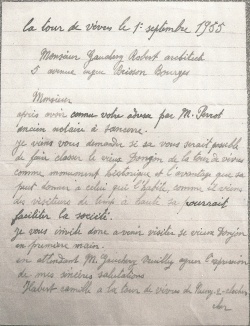 la tour de vèvre le 1er septembre 1955
Monsieur Gauchery Robert architect
5 avenue Brisson Bourges
Monsieur
après avoir connu votre adresse par M. Perrot
ancien notaire à sancerre.
je viens vous demander si se vous serait possible
de faire classer le vieux Donjon de la tour de vèvre
comme monument historique et l'avantage que sa
peut donner à celui qui l'habite, comme il vient
des visiteurs de temp à haute sa pourrait
faciliter la société.
je vous invite donc a venir visiter se vieux Donjon
en première main.
en attendant M. Gauchery veuillez agréer l'expression
de mes sincères salutations
Habert camille a la tour de vèvre de Neuvy-2-clochers
cher